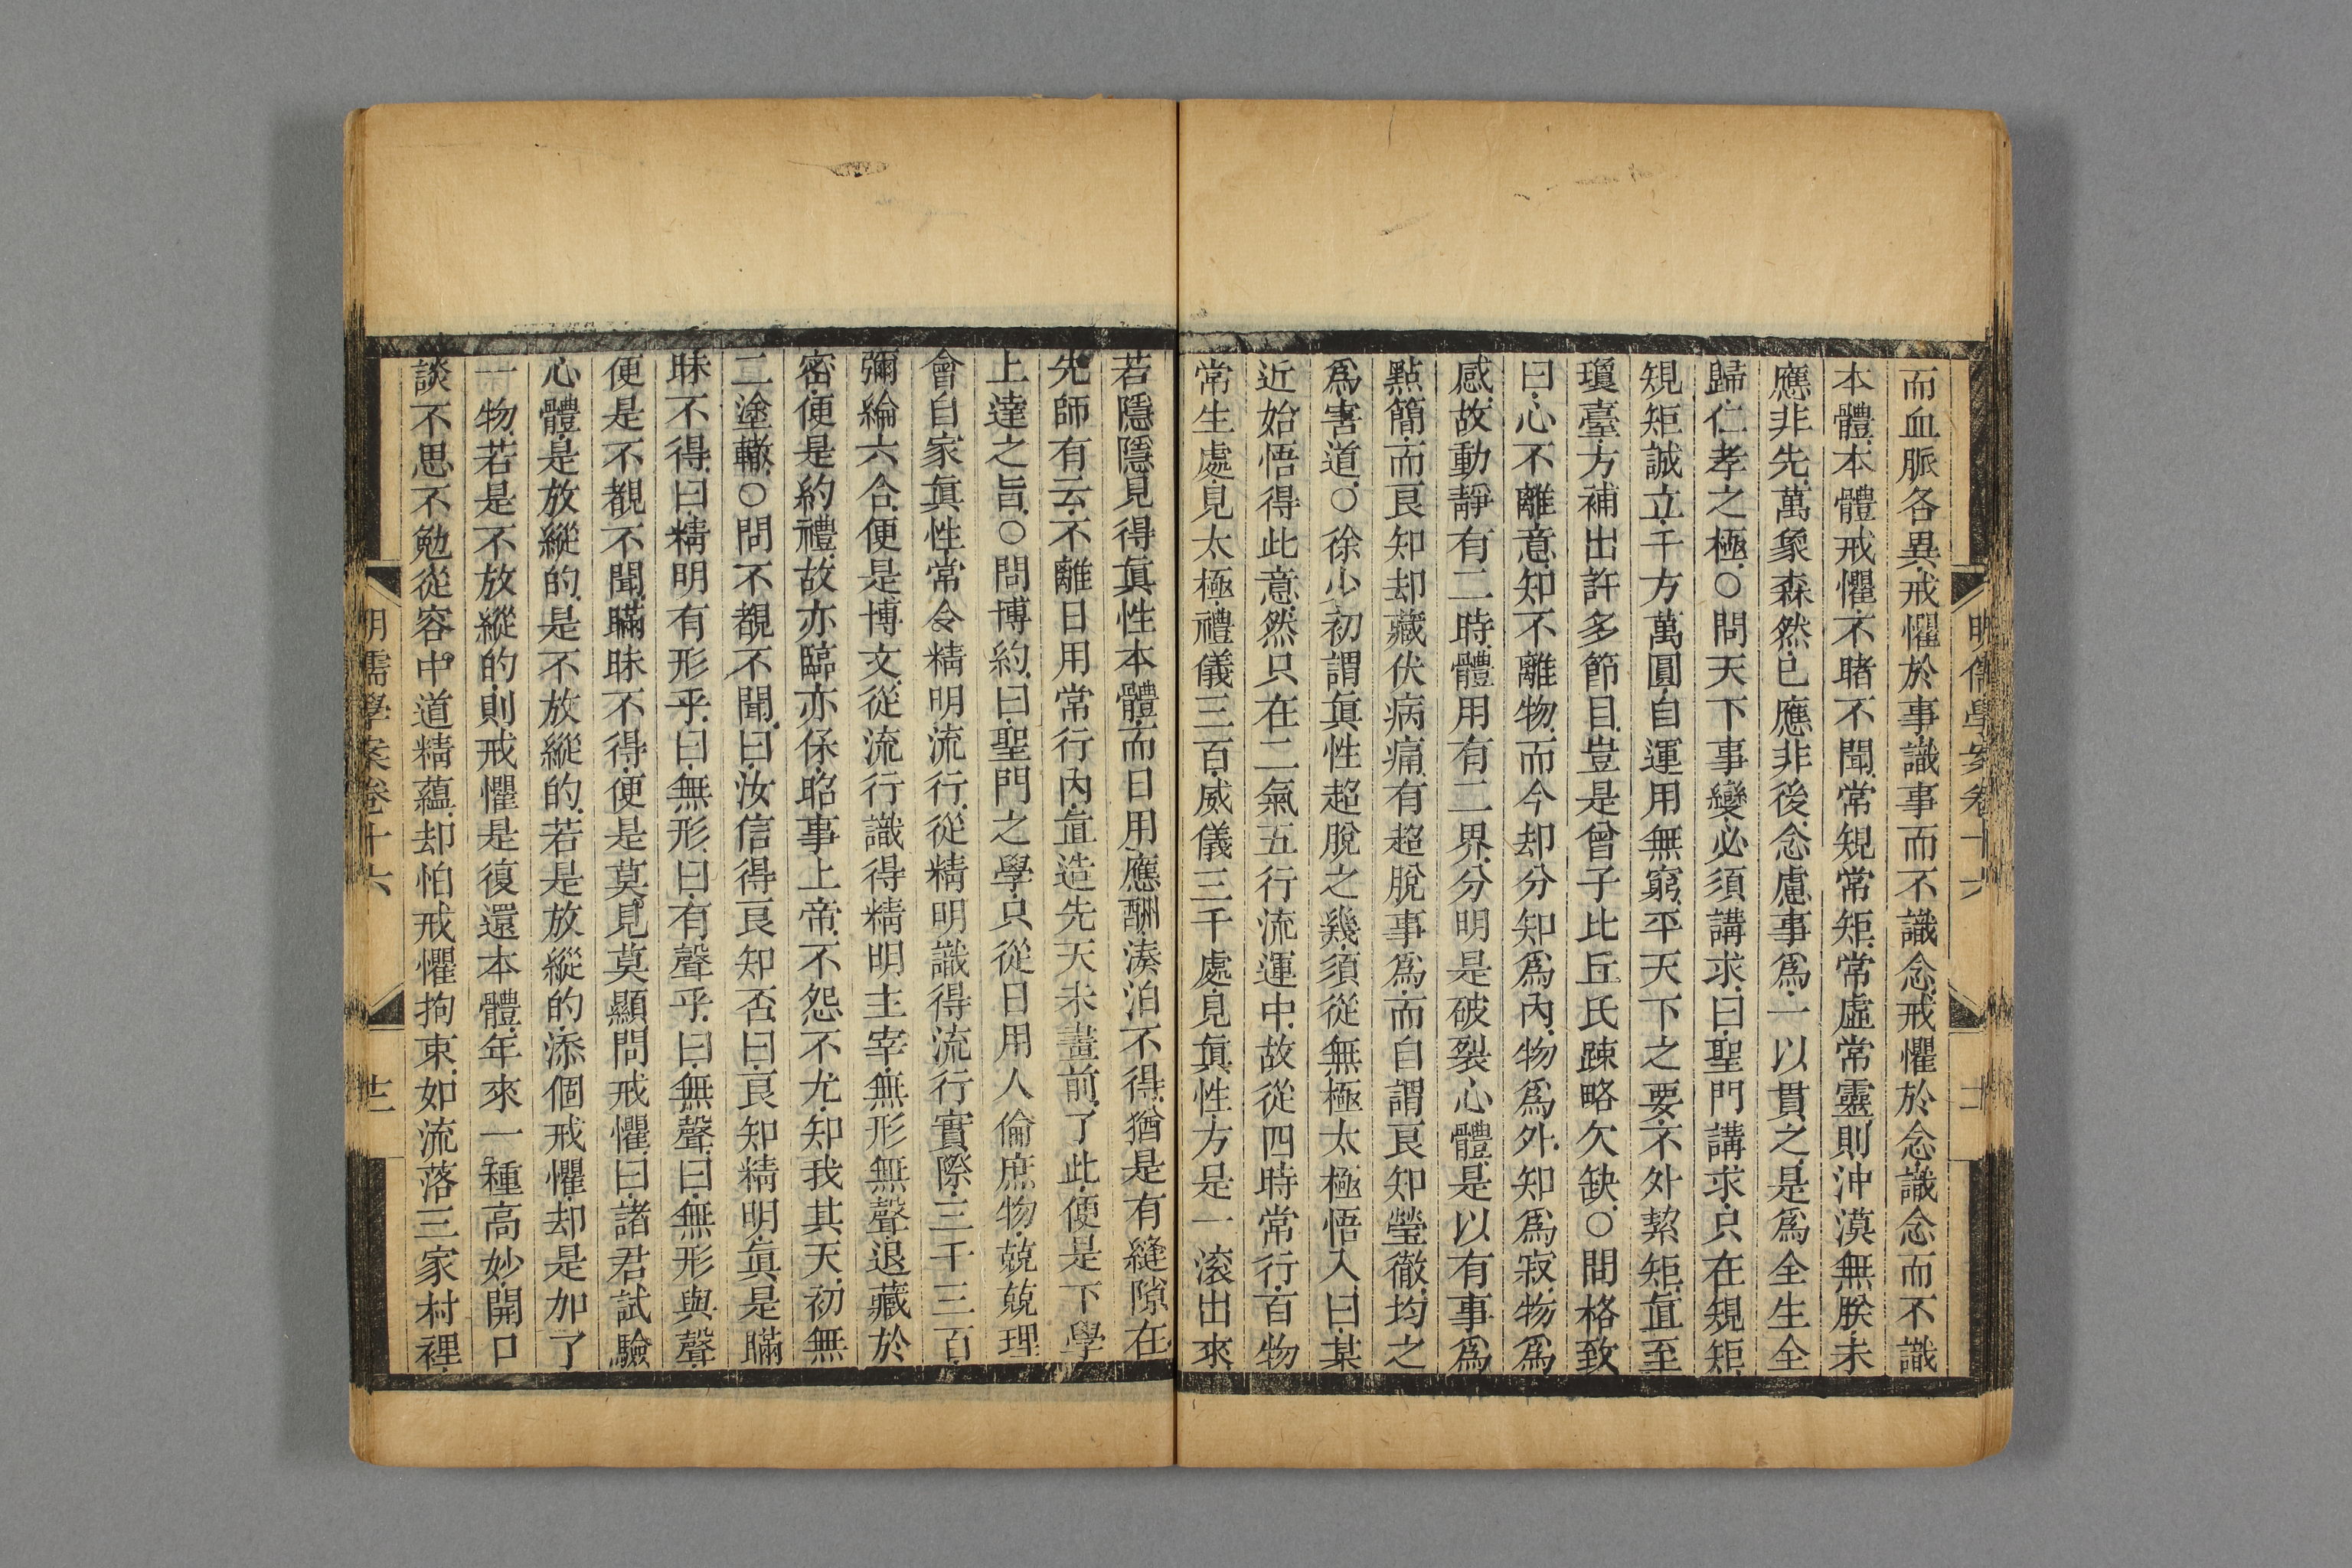 而血脈各異戒懼於事識事而不識念戒懼於念識念而不識
本體本體戒懼不睹不聞常規常矩常虛常靈則沖漠無朕未
應非先萬象森然已應非後念慮事爲一以貫之是爲全生全
歸仁孝之極○問天下事變必須講求曰聖門講求只在規矩
規矩誠立千方萬圓自運用無窮平天下之要不外絜矩直至
瓊臺方補出許多節目豈是曾子比丘氏疎略欠缺○問格致
曰心不離意知不離物而今却分知爲內物爲外知爲寂物爲
感故動靜有二時體用有二界分明是破裂心體是以有事爲
點簡而良知却藏伏病痛有超脫事爲而自謂良知瑩徹均之
爲害道○徐少初謂眞性超脫之幾須從無極太極悟入曰某
近始悟得此意然只在二氣五行流運中故從四時常行百物
常生處見太極禮儀三百威儀三千處見眞性方是一滚出來
若隱隱見得眞性本體而日用應酬湊泊不得猶是有縫隙在
先師有云不離日用常行內直造先天未畫前了此便是下學
上達之旨○問博約曰聖門之學只從日用人倫庶物兢兢理
會自家眞性常令精明流行從精明識得流行實際三千三百
彌綸六合便是博文從流行識得精明主宰無形無聲退藏於
密便是約禮故亦臨亦保昭事上帝不怨不尤知我其天初無
二塗轍○問不覩不聞曰汝信得良知否曰良知精明眞是瞞
昧不得曰精明有形乎曰無形曰有聲乎曰無聲曰無形與聲
便是不覩不聞瞞昧不得便是莫見莫顯問戒懼曰諸君試驗
心體是放縱的是不放縱的若是放縱的添個戒懼却是加了
一物若是不放縱的則戒懼是復還本體年來一種高妙開口
談不思不勉從容中道精蘊却怕戒懼拘束如流落三家村裡
明儒學案卷十六